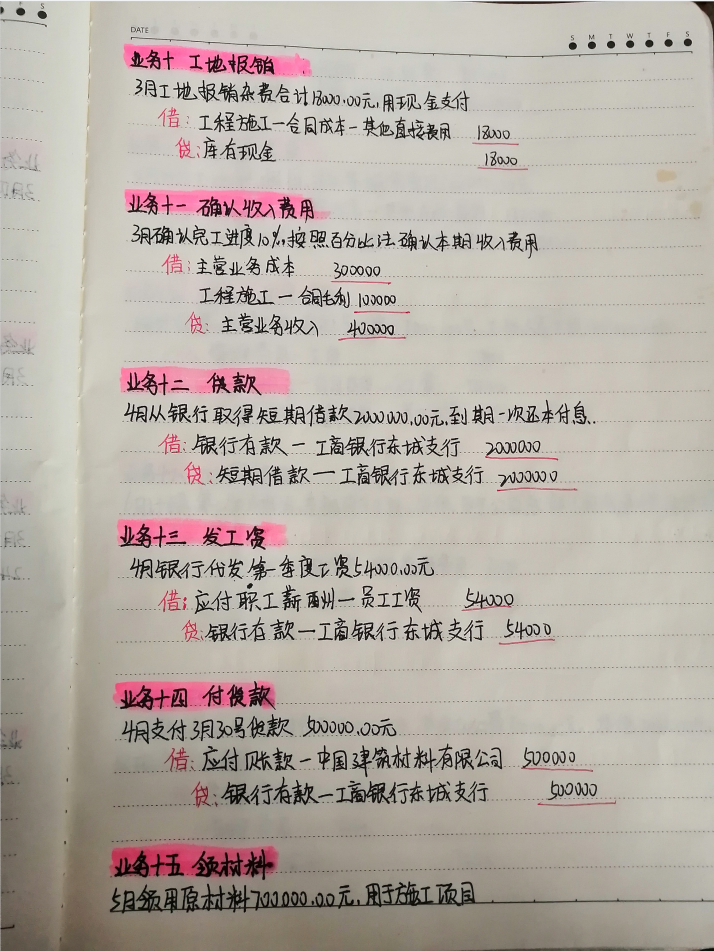 DATE
S M T W T F S
业务十 工地报销
3月工地报销杂费合计18000.00元,用现金支付
借: 工程施工一合同成本-其他直接费用 18000
贷: 库存现金 18000
业务十一 确认收入费用
3月确认完工进度10%,按照百分比法确认本期收入费用
借: 主营业务成本 300000
工程施工一合同毛利 100000
贷: 主营业务收入 400000
业务十二 贷款
4月从银行取得短期借款2000000.00元,到期一次还本付息.
借: 银行存款一工商银行东城支行 2000000
贷: 短期借款一工商银行东城支行 2000000
业务十三 发工资
4月银行代发第一季度工资54000.00元
借: 应付职工薪酬一员工工资 54000
贷: 银行存款一工商银行东城支行 54000
业务十四 付货款
4月支付3月30号货款 500000.00元
借: 应付账款-中国建筑材料有限公司 500000
贷: 银行存款一工商银行东城支行 500000
业务十五 领材料
5月领用原材料700000.00元,用于施工项目